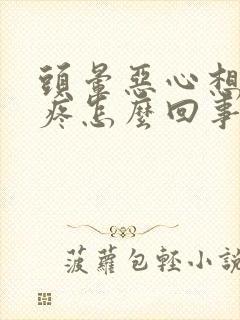 頭暈惡心想
疼怎麼回事
菠蘿包輕小說